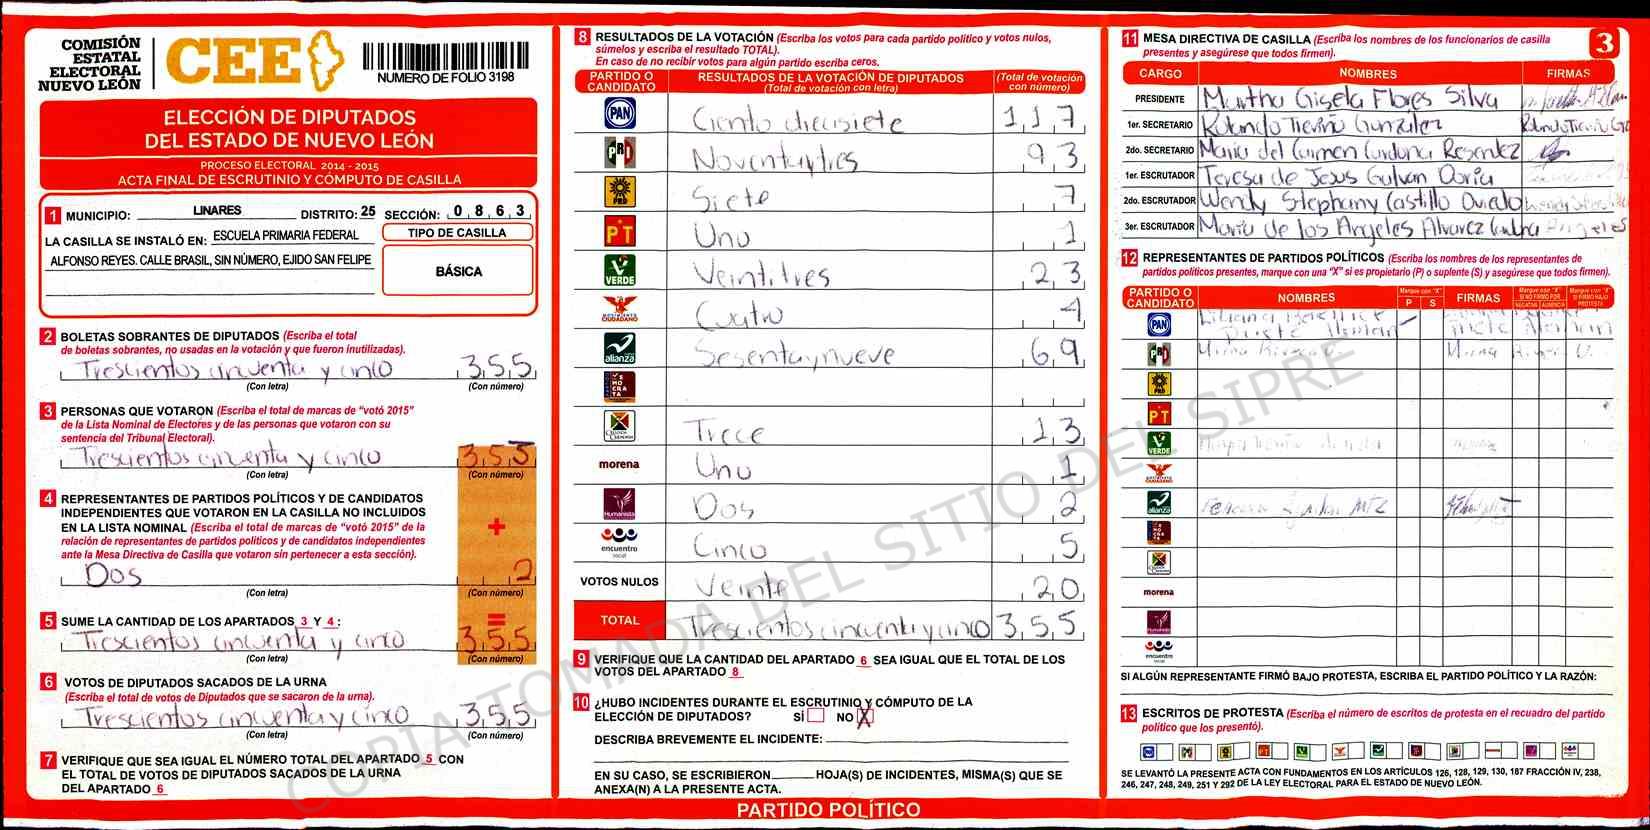 COMISIÓN
ESTATAL
ELECTORAL
NUEVO LEÓN
CEE
NUMERO DE FOLIO 3198
ELECCIÓN DE DIPUTADOS
DEL ESTADO DE NUEVO LEÓN
PROCESO ELECTORAL 2014 - 2015
ACTA FINAL DE ESCRUTINIO Y CÓMPUTO DE CASILLA
1 MUNICIPIO: LINARES DISTRITO: 25 SECCIÓN: 0 8 6 3
LA CASILLA SE INSTALÓ EN: ESCUELA PRIMARIA FEDERAL
ALFONSO REYES. CALLE BRASIL, SIN NÚMERO, EJIDO SAN FELIPE
TIPO DE CASILLA
BÁSICA
2 BOLETAS SOBRANTES DE DIPUTADOS (Escriba el total
de boletas sobrantes, no usadas en la votación y que fueron inutilizadas).
Trescientos cincuenta y cinco 3 5 5
(Con letra) (Con número)
3 PERSONAS QUE VOTARON (Escriba el total de marcas de "votó 2015"
de la Lista Nominal de Electores y de las personas que votaron con su
sentencia del Tribunal Electoral).
Trescientos cincuenta y cinco 3 5 5
(Con letra) (Con número)
4 REPRESENTANTES DE PARTIDOS POLÍTICOS Y DE CANDIDATOS
INDEPENDIENTES QUE VOTARON EN LA CASILLA NO INCLUIDOS
EN LA LISTA NOMINAL (Escriba el total de marcas de "votó 2015" de la
relación de representantes de partidos políticos y de candidatos independientes
ante la Mesa Directiva de Casilla que votaron sin pertenecer a esta sección).
+
Dos 2
(Con letra) (Con número)
=
5 SUME LA CANTIDAD DE LOS APARTADOS 3 Y 4 :
Trescientos cincuenta y cinco 3 5 5
(Con letra) (Con número)
6 VOTOS DE DIPUTADOS SACADOS DE LA URNA
(Escriba el total de votos de Diputados que se sacaron de la urna).
Trescientos cincuenta y cinco 3 5 5
(Con letra) (Con número)
7 VERIFIQUE QUE SEA IGUAL EL NÚMERO TOTAL DEL APARTADO 5 CON
EL TOTAL DE VOTOS DE DIPUTADOS SACADOS DE LA URNA
DEL APARTADO 6
8 RESULTADOS DE LA VOTACIÓN (Escriba los votos para cada partido político y votos nulos,
súmelos y escriba el resultado TOTAL).
En caso de no recibir votos para algún partido escriba ceros.
PARTIDO O CANDIDATO RESULTADOS DE LA VOTACIÓN DE DIPUTADOS (Total de votación con letra) (Total de votación con número)
PAN Ciento diecisiete 1 1 7
PRD Noventaytres 9 3
PRD Siete 7
PT Uno 1
VERDE Veintitres 2 3
MOVIMIENTO CIUDADANO Cuatro 4
alianza Sesentaynueve 6 9
DEMOCRATA
CRUZADA CIUDADANA Trece 1 3
morena Uno 1
Humanista Dos 2
encuentro social Cinco 5
VOTOS NULOS Veinte 2 0
TOTAL Trescientos cincuenta y cinco 3 5 5
9 VERIFIQUE QUE LA CANTIDAD DEL APARTADO 6 SEA IGUAL QUE EL TOTAL DE LOS
VOTOS DEL APARTADO 8
10 ¿HUBO INCIDENTES DURANTE EL ESCRUTINIO Y CÓMPUTO DE LA
ELECCIÓN DE DIPUTADOS? SÍ NO X
DESCRIBA BREVEMENTE EL INCIDENTE:
EN SU CASO, SE ESCRIBIERON HOJA(S) DE INCIDENTES, MISMA(S) QUE SE
ANEXA(N) A LA PRESENTE ACTA.
11 MESA DIRECTIVA DE CASILLA (Escriba los nombres de los funcionarios de casilla
presentes y asegúrese que todos firmen).
3
CARGO NOMBRES FIRMAS
PRESIDENTE Martha Gisela Flores Silva
1er. SECRETARIO Rolando Treviño González Rolando Treviño Go
2do. SECRETARIO Maria del Carmen Cardona Resendez
1er. ESCRUTADOR Teresa de Jesus Galvan Doria
2do. ESCRUTADOR Wendy Stephany Castillo Oviedo
3er. ESCRUTADOR Maria de los Angeles Alvarez
12 REPRESENTANTES DE PARTIDOS POLÍTICOS (Escriba los nombres de los representantes de
partidos políticos presentes, marque con una "X" si es propietario (P) o suplente (S) y asegúrese que todos firmen).
PARTIDO O CANDIDATO NOMBRES Marque con "X" P S FIRMAS Marque con "X" SI NO FIRMÓ POR NEGATIVA AUSENCIA Marque con "X" SI FIRMÓ BAJO PROTESTA
PAN
PRI
PRD
PT
VERDE
MOVIMIENTO CIUDADANO
alianza
morena
Humanista
encuentro social
SI ALGÚN REPRESENTANTE FIRMÓ BAJO PROTESTA, ESCRIBA EL PARTIDO POLÍTICO Y LA RAZÓN:
13 ESCRITOS DE PROTESTA (Escriba el número de escritos de protesta en el recuadro del partido
político que los presentó).
SE LEVANTÓ LA PRESENTE ACTA CON FUNDAMENTOS EN LOS ARTÍCULOS 126, 128, 129, 130, 187 FRACCIÓN IV, 238,
246, 247, 248, 249, 251 Y 292 DE LA LEY ELECTORAL PARA EL ESTADO DE NUEVO LEÓN.
PARTIDO POLÍTICO
COPIA TOMADA DEL SITIO DEL SIPRE